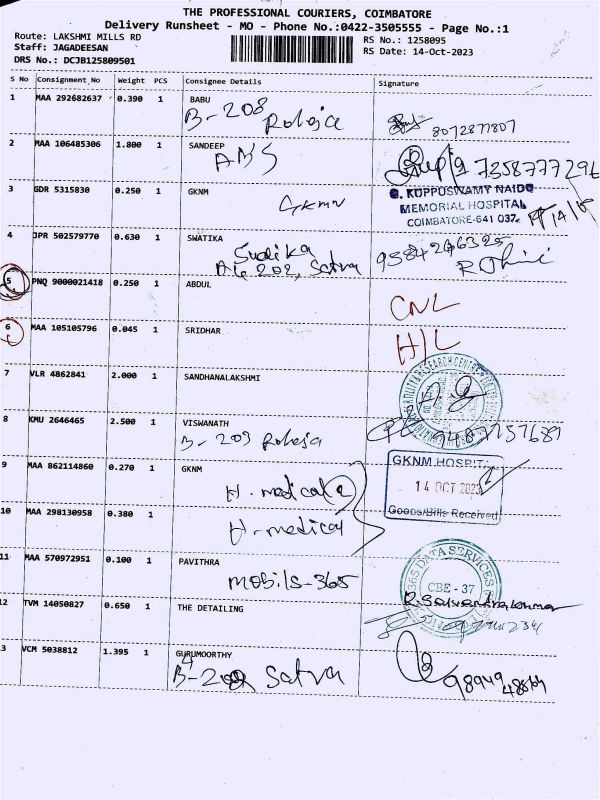 THE PROFESSIONAL COURIERS, COIMBATORE
Delivery Runsheet - MO - Phone No.:0422-3505555 - Page No.:1
Route: LAKSHMI MILLS RD
RS No.: 1258095
Staff: JAGADEESAN
RS Date: 14-Oct-2023
DRS No.: DCJB125809501
S No Consignment_No Weight PCS Consignee Details Signature
1 MAA 292682637 0.390 1 BABU
B-208 Roloja 8072871807
2 MAA 106485306 1.800 1 SANDEEP
7358777296
3 GDR 5315830 0.250 1 GKNM
GKMN
G. KUPPUSWAMY NAIDU
MEMORIAL HOSPITAL
COIMBATORE-641 037.
4 JPR 502579770 0.630 1 SWATIKA
202, Satva
5 PNQ 9000021418 0.250 1 ABDUL
CNL
6 MAA 105105796 0.045 1 SRIDHAR
H/L
7 VLR 4862841 2.000 1 SANDHANALAKSHMI
8 KMU 2646465 2.500 1 VISWANATH
B-203 Roloja
9 MAA 862114860 0.270 1 GKNM
H-medical
GKNM HOSPITAL
14 OCT 2023
Goods/Bills Received
10 MAA 298130958 0.380 1
H-medical
11 MAA 570972951 0.100 1 PAVITHRA
Mobils-365
365 DATA SERVICES
CBE - 37
12 TVM 14050827 0.650 1 THE DETAILING
13 VCM 5038812 1.395 1 GURUMOORTHY
Satva